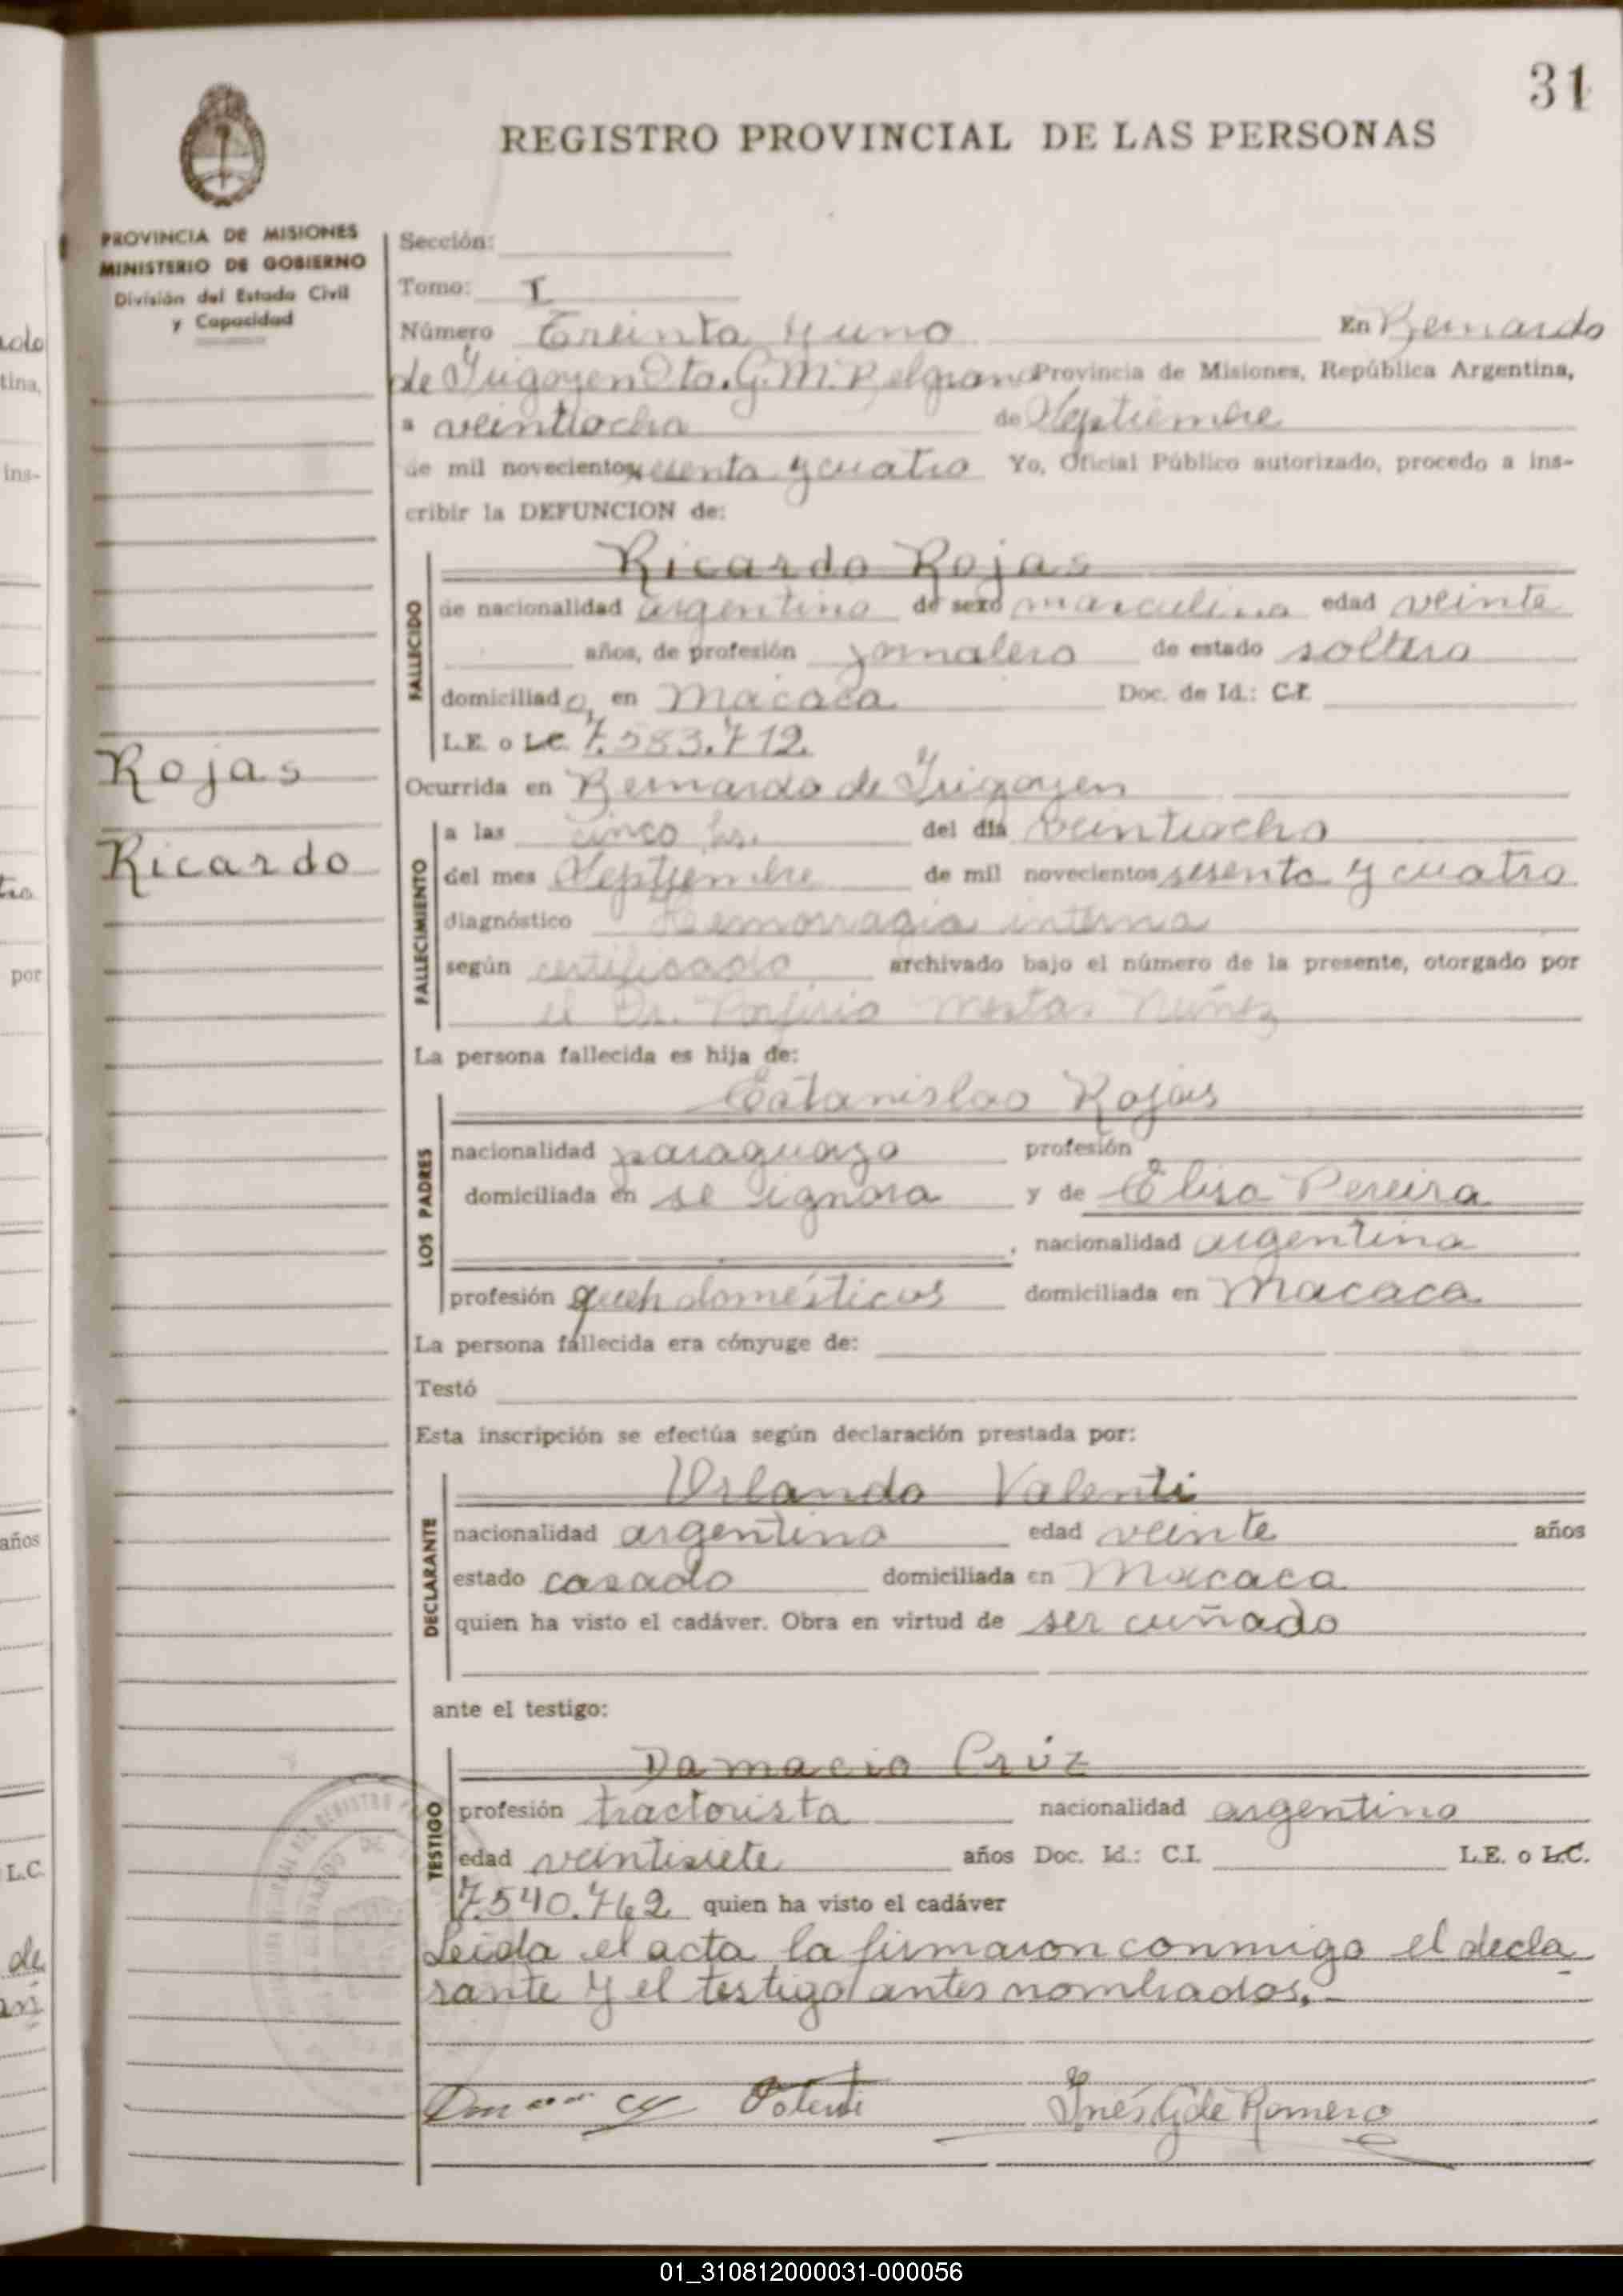 31
REGISTRO PROVINCIAL DE LAS PERSONAS
PROVINCIA DE MISIONES
MINISTERIO DE GOBIERNO
División del Estado Civil
y Capacidad
Sección:
Tomo: I
Número Treinta y uno En Bernardo
de Yrigoyen Dto. G. M. Belgrano Provincia de Misiones, República Argentina,
a veintiocho de Septiembre
de mil novecientos sesenta y cuatro Yo, Oficial Público autorizado, procedo a ins-
cribir la DEFUNCION de:
FALLECIDO
Ricardo Rojas
de nacionalidad argentino de sexo masculino edad veinte
años, de profesión jornalero de estado soltero
domiciliado, en Macaca Doc. de Id.: C.I.
L.E. o L.C. 7.583.712.
Rojas
Ricardo
Ocurrida en Bernardo de Yrigoyen
FALLECIMIENTO
a las cinco hs. del día veintiocho
del mes Septiembre de mil novecientos sesenta y cuatro
diagnóstico Hemorragia interna
según certificado archivado bajo el número de la presente, otorgado por
el Dr. Porfirio Mestas Núñez
La persona fallecida es hija de:
LOS PADRES
Estanislao Rojas
nacionalidad paraguayo profesión
domiciliada en se ignora y de Elisa Pereira
, nacionalidad argentina
profesión queh domésticos domiciliada en Macaca
La persona fallecida era cónyuge de:
Testó
Esta inscripción se efectúa según declaración prestada por:
DECLARANTE
Orlando Valenti
nacionalidad argentino edad veinte años
estado casado domiciliada en Macaca
quien ha visto el cadáver. Obra en virtud de ser cuñado
ante el testigo:
TESTIGO
Damacio Crúz
profesión tractorista nacionalidad argentino
edad veintisiete años Doc. Id.: C.I. L.E. o L.C.
7.540.762 quien ha visto el cadáver
Leída el acta la firmaron conmigo el decla
rante y el testigo antes nombrados.-
Inés G de Romero
01_310812000031-000056